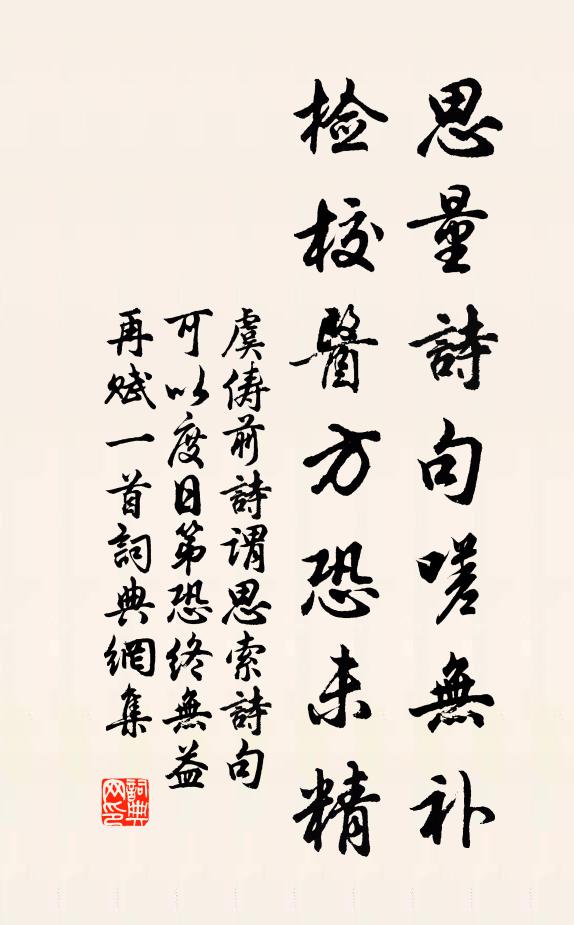 思量詩句嗟無补
檢校醫方恐未精
虞儔前詩謂思索詩句
可以度日第恐終無益
再赋一首詞典網集
詞典网印